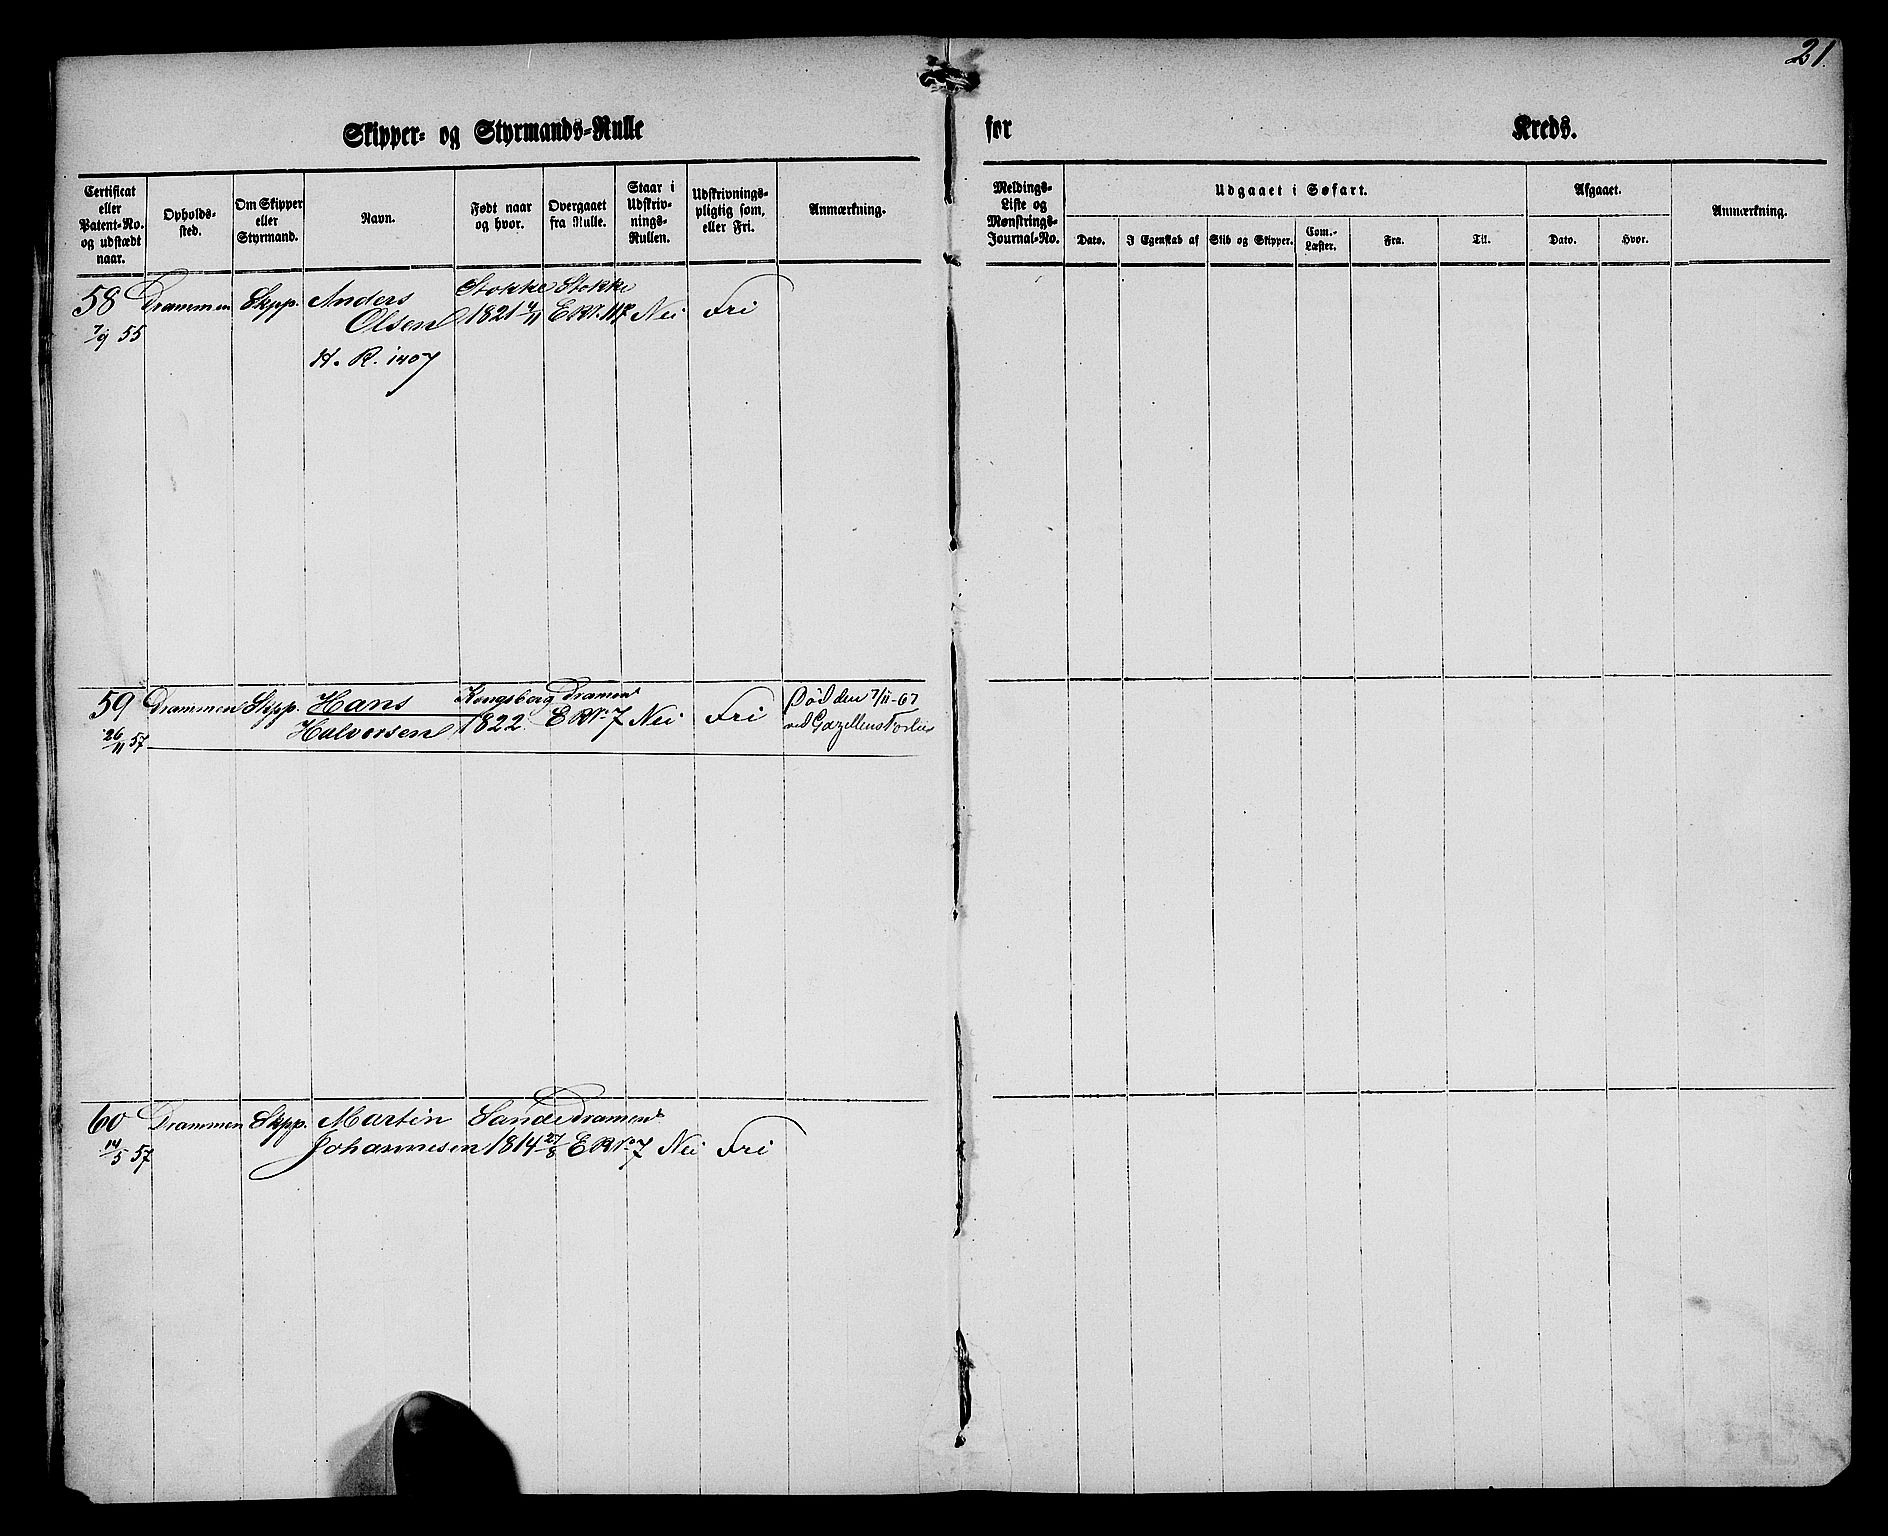 21.
Skipper- og Styrmands-Rulle for Kreds.
Certificat eller Patent-No. og udstædt naar.
Opholds-sted.
Om Skipper eller Styrmand.
Navn.
Født naar og hvor.
Overgaaet fra Rulle.
Staar i Udskriv-nings-Rullen.
Udskrivnings-pligtig som, eller Fri.
Anmærkning.
Meldings-Liste og Mønstrings-Journal-No.
Udgaaet i Søfart.
Dato.
I Egenskab af
Skib og Skipper.
Com.-Læster.
Fra.
Til.
Afgaaet.
Dato.
Hvor.
Anmærkning.
58 Drammen Skpp. Anders Stokke Stokke
7/9 55 Olsen 1821 4/11 E Nei Fri
H. R. 1407
59 Drammen Skpp. Hans Kongsberg Dramens
26/11 57 Halvorsen 1822 E R No 7 Nei Fri
Død den 7/11-67
ved Gazellens Forliis
60 Drammen Skpp. Martin Sande Dramens
14/5 57 Johannesen 1814 27/8 E R No 7 Nei Fri